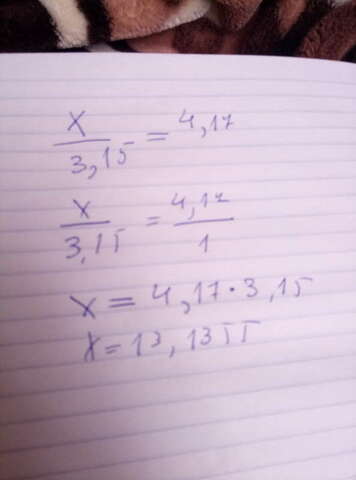 x/3,15 = 4,17
x/3,15 = 4,17/1
x = 4,17·3,15
x = 13,1355